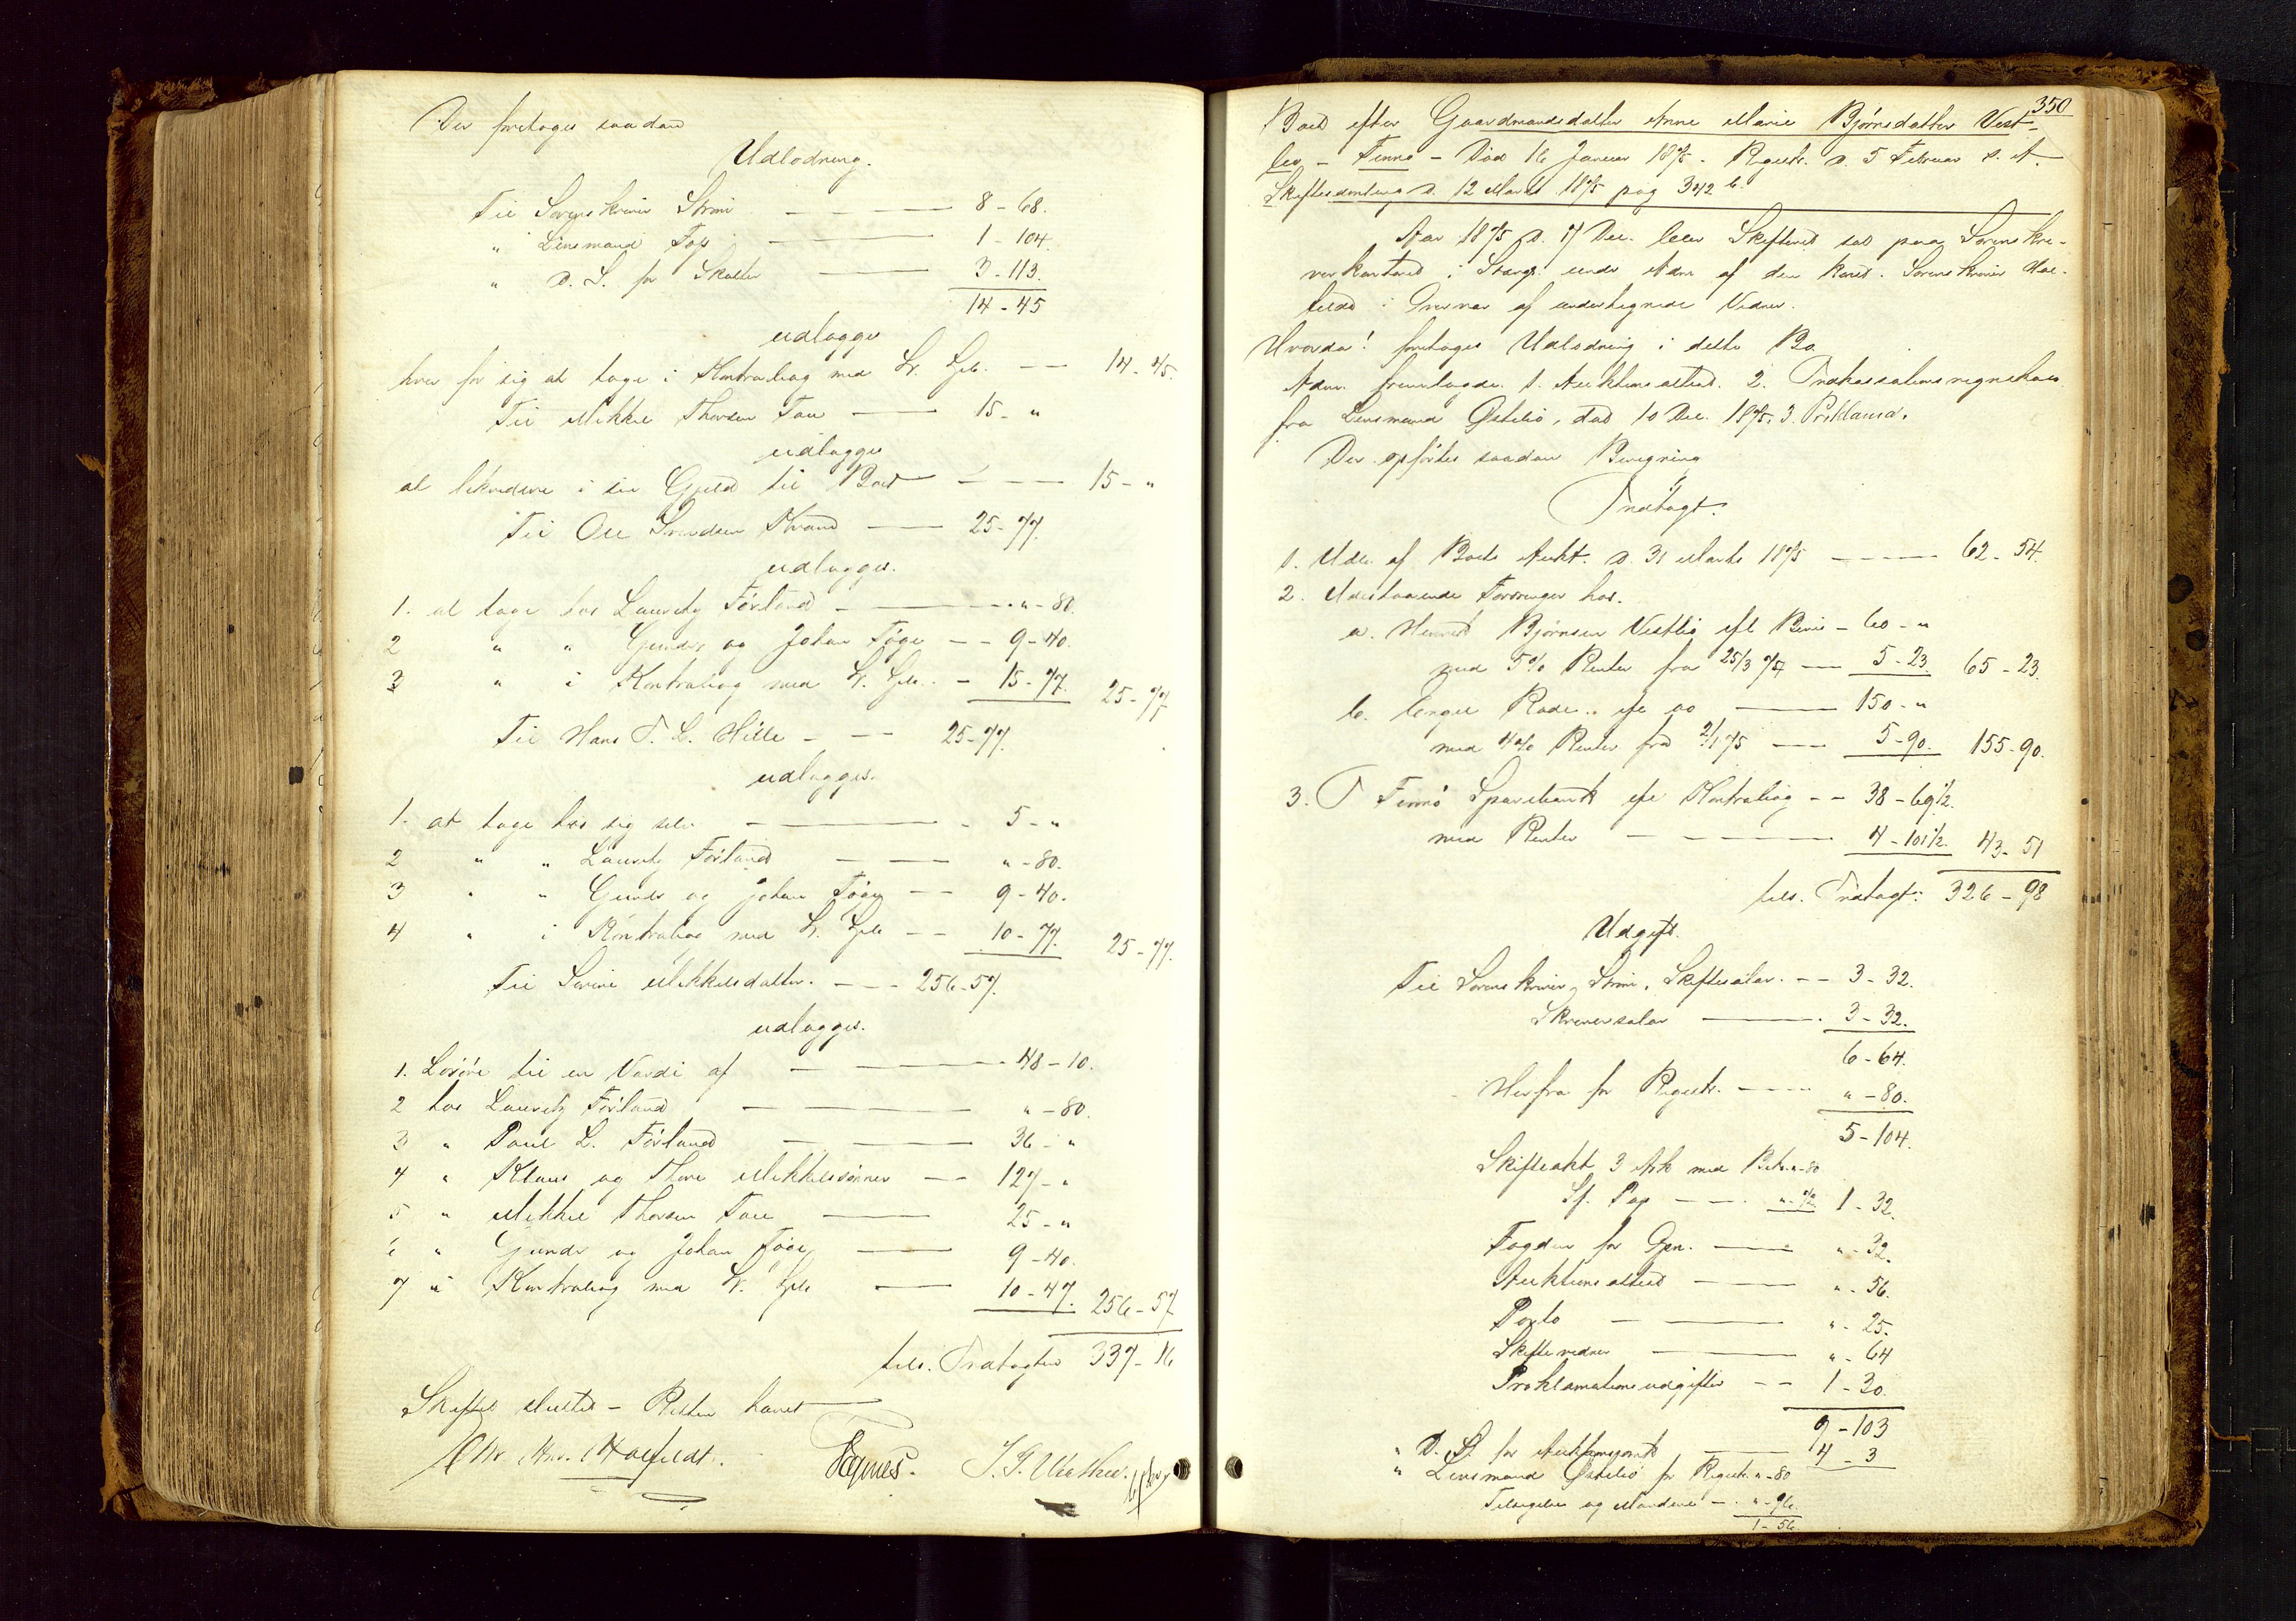 Der foretages saadan
Udlodning.
Til Sorenskriver Strøm — 8 - 68.
" Lensmand — 1 - 104.
" D. S. for Skatter — 3 - 113.
14 - 45
udlægges
hver for sig at tage i Kontrabog med 14 - 45.
Til Mikkel Thorsen — 15 - "
udlægges
at likvidere i sin Gjeld til Boet — 15 - "
Til Ole Svendsen — 25 - 77.
udlægges.
1. at tage hos Lauritz Førland — " - 80.
2 " " Gunder og Johan — 9 - 40.
3 " i Kontrabog med — 15 - 77. 25 - 77
Til Hans T. L. Hille — 25 - 77.
udlægges.
1. at tage hos sig selv — 5 - "
2 " " Lauritz Førland — " - 80.
3 " " Gunder og Johan — 9 - 40.
4 " i Kontrabog med — 10 - 77. 25 - 77.
Til Serine Mikkelsdatter. — 256 - 57.
udlægges.
1. Løsøre til en Værdi af — 48 - 10.
2 hos Lauritz Førland — " - 80.
3 " Paul L. Førland — 36 - "
4 " Klaus og Thore Mikkelssønner — 127 - "
5 " Mikkel Thorsen — 25 - "
6 " Gunder og Johan — 9 - 40.
7 i Kontrabog med — 10 - 47. 256 - 57
tils. Indtægten 337 - 16
Skiftet sluttet - Retten hævet
350
Boet efter Gaardmandsdatter Anne Marie Bjørnsdatter Vest-
bø - Finnø - Død 16 Januar 1875. Registr. d. 5 Februar s. A.
Skiftesamling d. 12 Marts 1875 pag 342 b.
Aar 1875 d. 17 Dec. blev Skifteret sat paa Sorenskri-
verkontoret i Stavgr. under Adm af den konst. Sorenskriver Hoe-
feldt i Overvær af undertegnede Vidner.
Hvorda! foretages Udlodning i dette Bo.
Adm. fremlagde. 1. Auktionsattest. 2. Indkassationsregnskab
fra Lensmand Østebø, dat 10 Dec. 1875. 3. Proklama.
Der opførtes saadan Beregning
Indtægt.
1. Udb. af Boets Aukt. d. 31 Marts 1875 — 62 - 54.
2. Udestaaende Fordringer hos.
a. Bjørnsen Vestbø efl Bevis — 60 - "
med 5% Renter fra 25/3 74 — 5 - 23. 65 - 23.
b. Bengt efl do — 150 - "
med 4% Renter fra 2/1 75 — 5 - 90. 155 - 90.
3. I Finnø Sparebank efl Kontrabog — 38 - 69½.
med Renter — 4 - 101½. 43 - 51
tils. Indtægt: 326 - 98
Udgift.
Til Sorenskriver Strøm, Skiftesalær. — 3 - 32.
Skriversalær — 3 - 32.
6 - 64.
Herfra for Registr. — " - 80.
5 - 104.
Skifteakt 3 Ark med " - 80
St. Pap — 1 - 32.
Fogden for Gjen. — " - 32.
Auktionsattest — " - 56.
Porto — " - 25.
Skiftevidner — " - 64
Proklamationsudgifter — 1 - 30.
9 - 103
" D. S. for — 4 - 3
" Lensmand Østebø for Registr. " - 80
Tilsigelse og Mændene — " - 96.
1 - 56